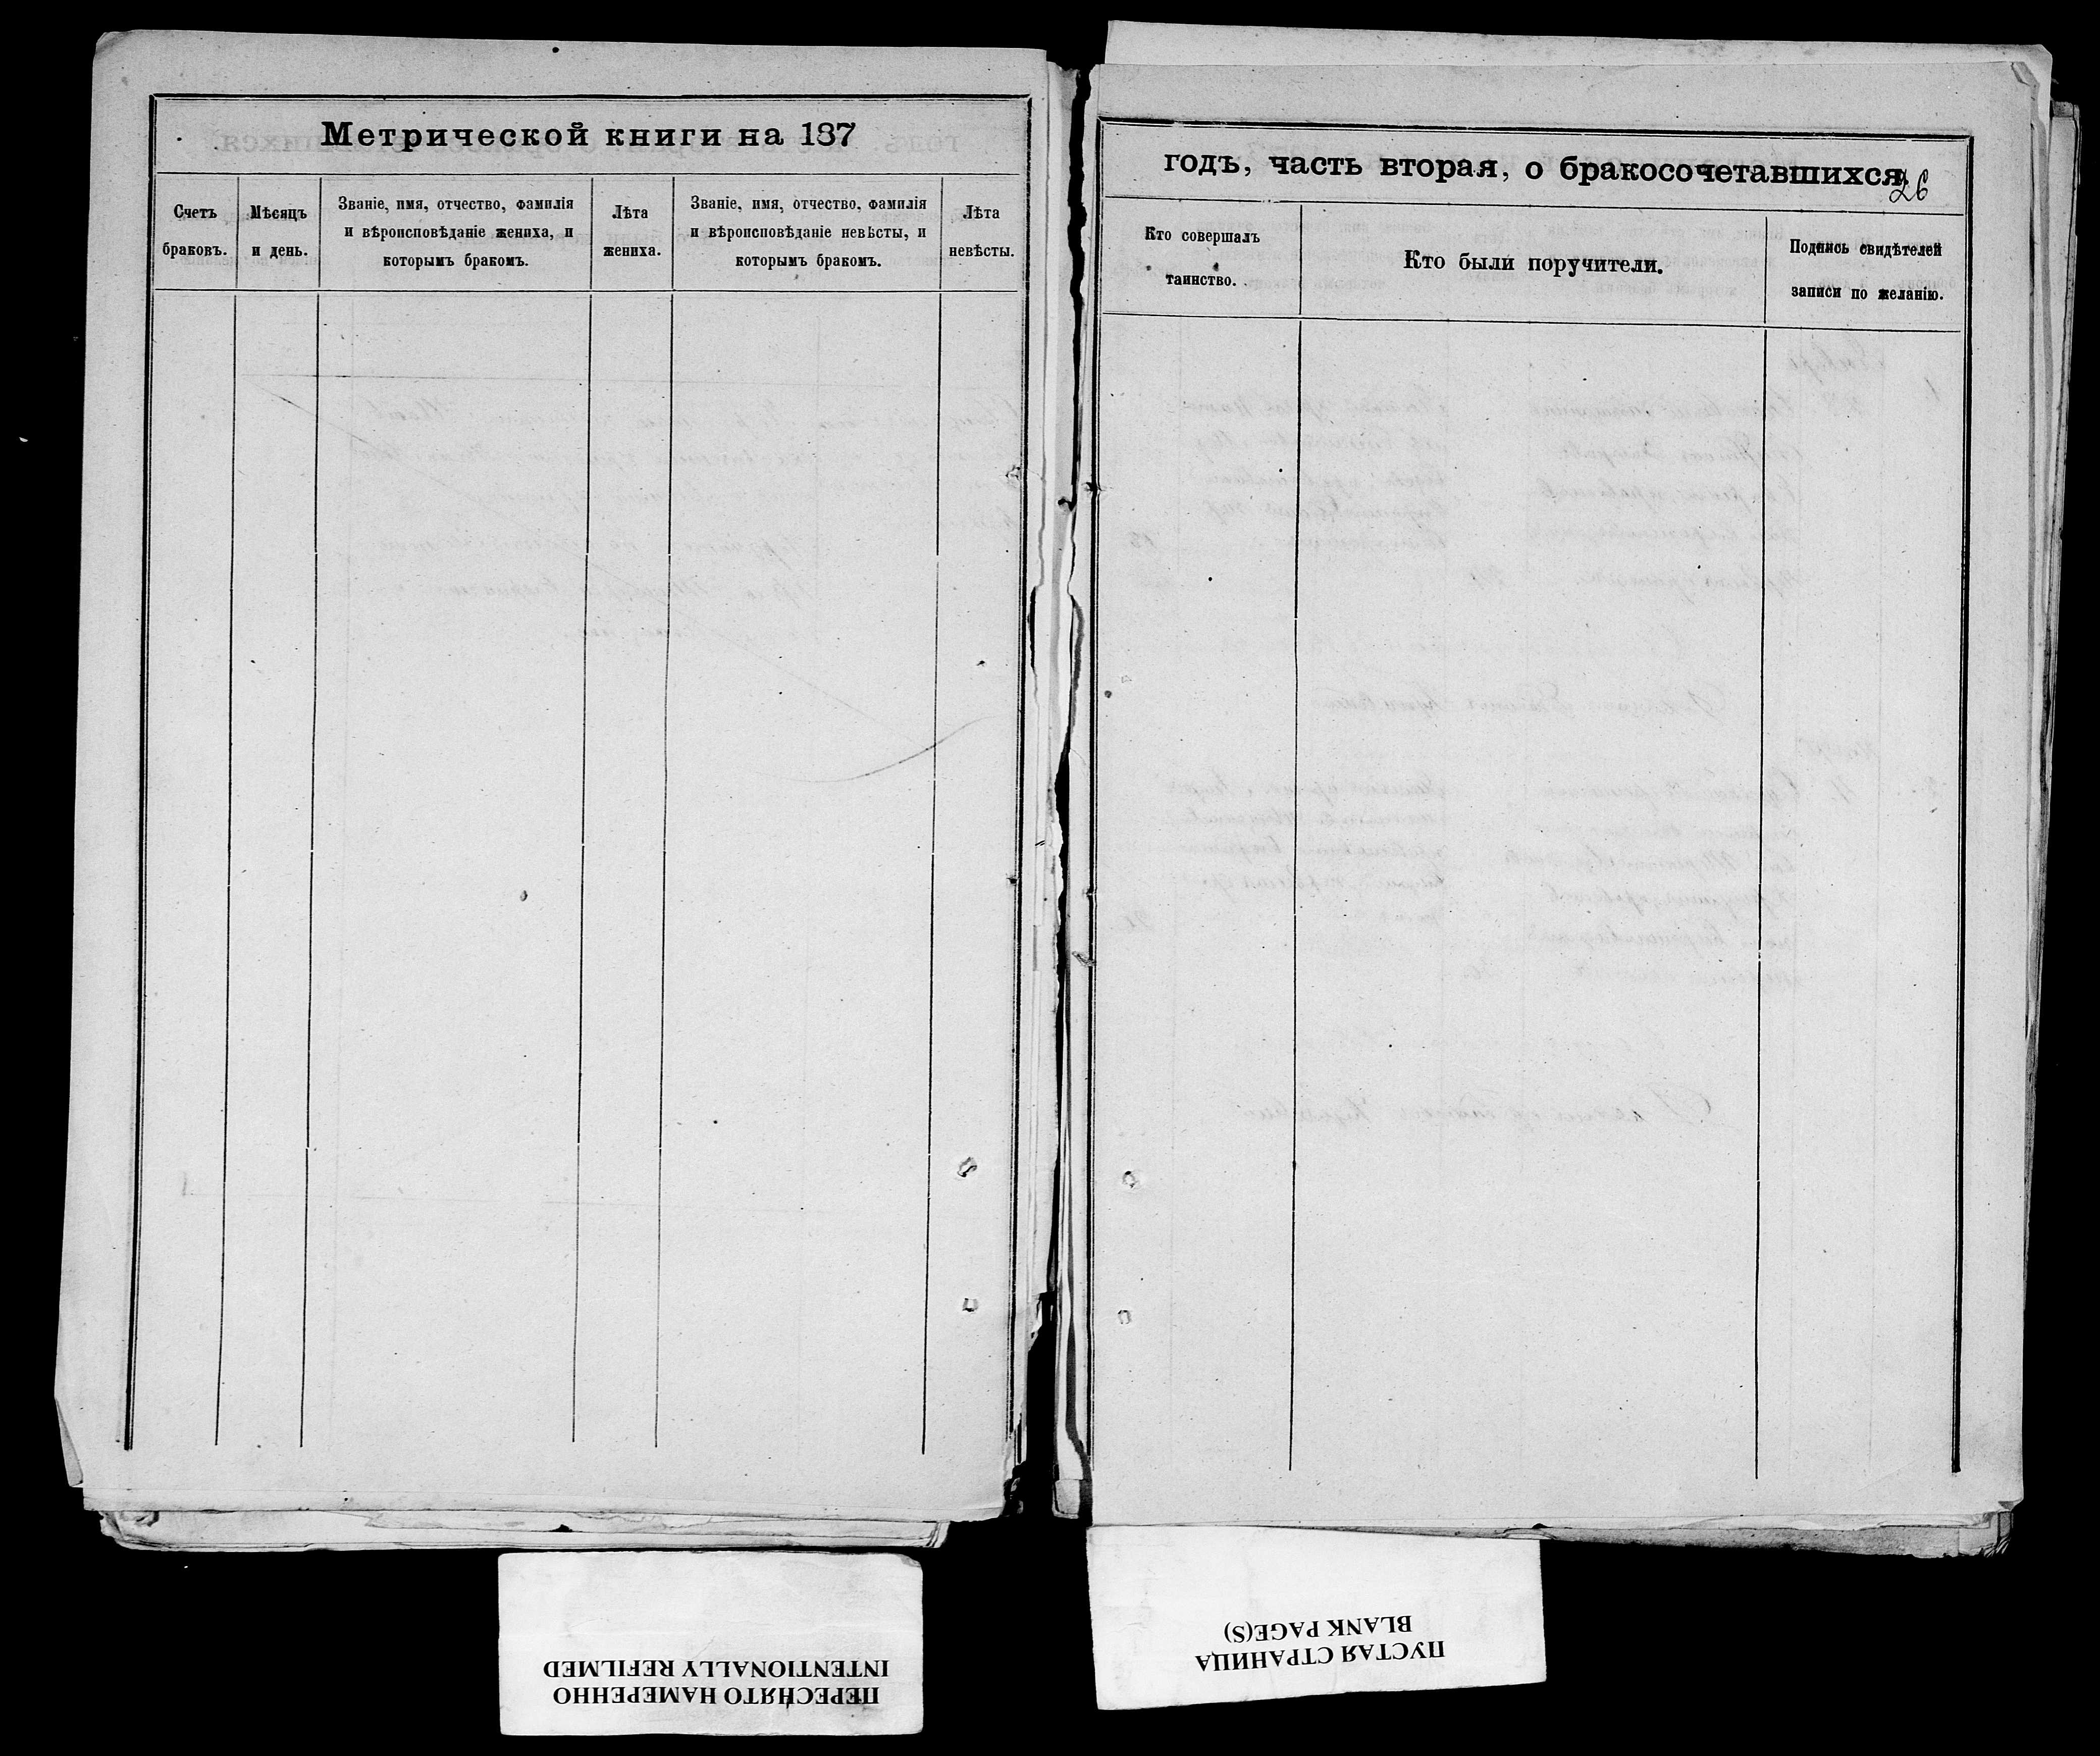 Метрической книги на 187
Счетъ
браковъ.
Мѣсяцъ
и день.
Званіе, имя, отчество, фамилія
и вѣроисповѣданіе жениха, и
которымъ бракомъ.
Лѣта
жениха.
Званіе, имя, отчество, фамилія
и вѣроисповѣданіе невѣсты, и
которымъ бракомъ.
Лѣта
невѣсты.
годъ, часть вторая, о бракосочетавшихся.
26
Кто совершалъ
таинство.
Кто были поручители.
Подпись свидѣтелей
записи по желанію.
ПЕРЕСНЯТО НАМЕРЕННО
INTENTIONALLY REFILMED
ПУСТАЯ СТРАНИЦА
BLANK PAGE(S)